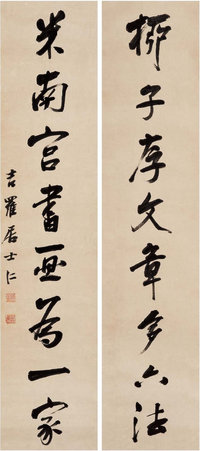 柳子厚文章多六法
米南宫書画爲一家
吉羅居士仁